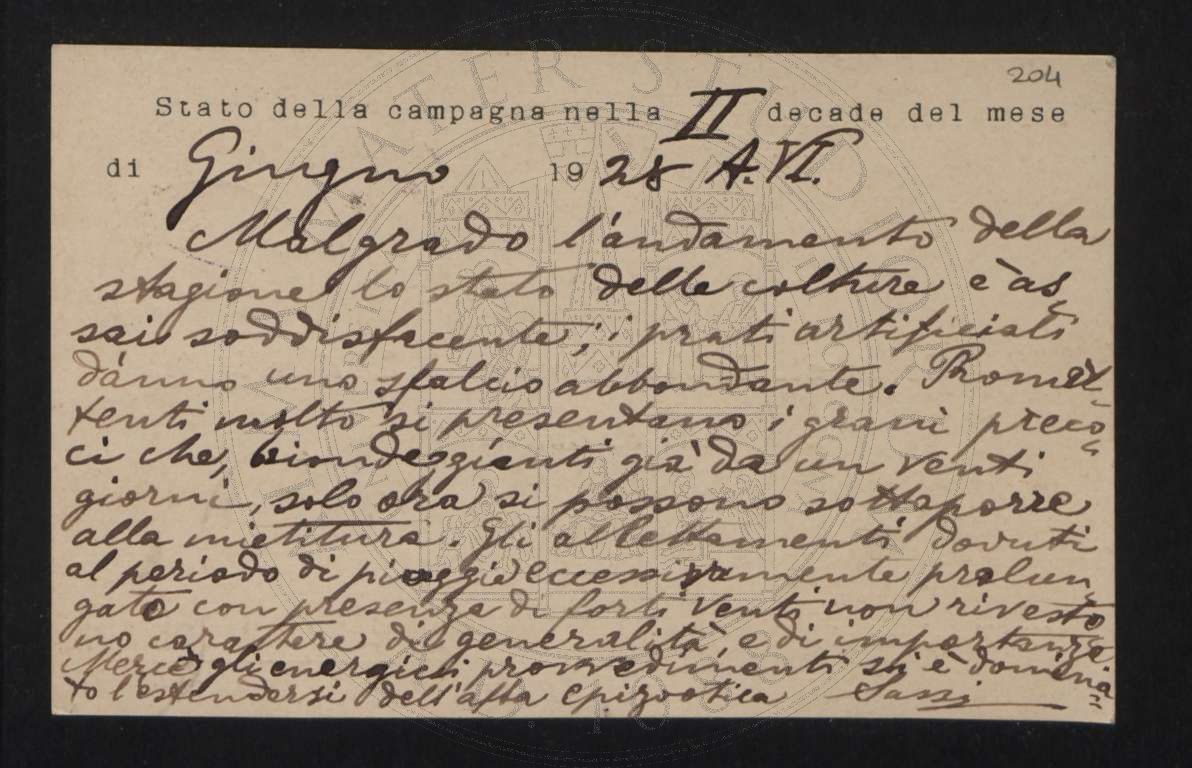 204
Stato della campagna nella II decade del mese
di Giugno 1928 A. VI.
Malgrado l'andamento della
stagione lo stato delle colture è as
sai soddisfacente; i prati artificiali
dánno uno sfalcio abbondante. Promet-
tenti molto si presentano i grani preco=
ci che, biondeggianti già da un venti
giorni, solo ora si possono sottoporre
alla mietitura. Gli allettamenti dovuti
al periodo di pioggie eccessivamente prolun
gato con presenza di forti venti non rivesto
no carattere di generalità e di importanza
Mercè gli energici provvedimenti si è domina=
to l'estendersi dell'afta epizootica Sassi
ALMA MATER STUDIORUM